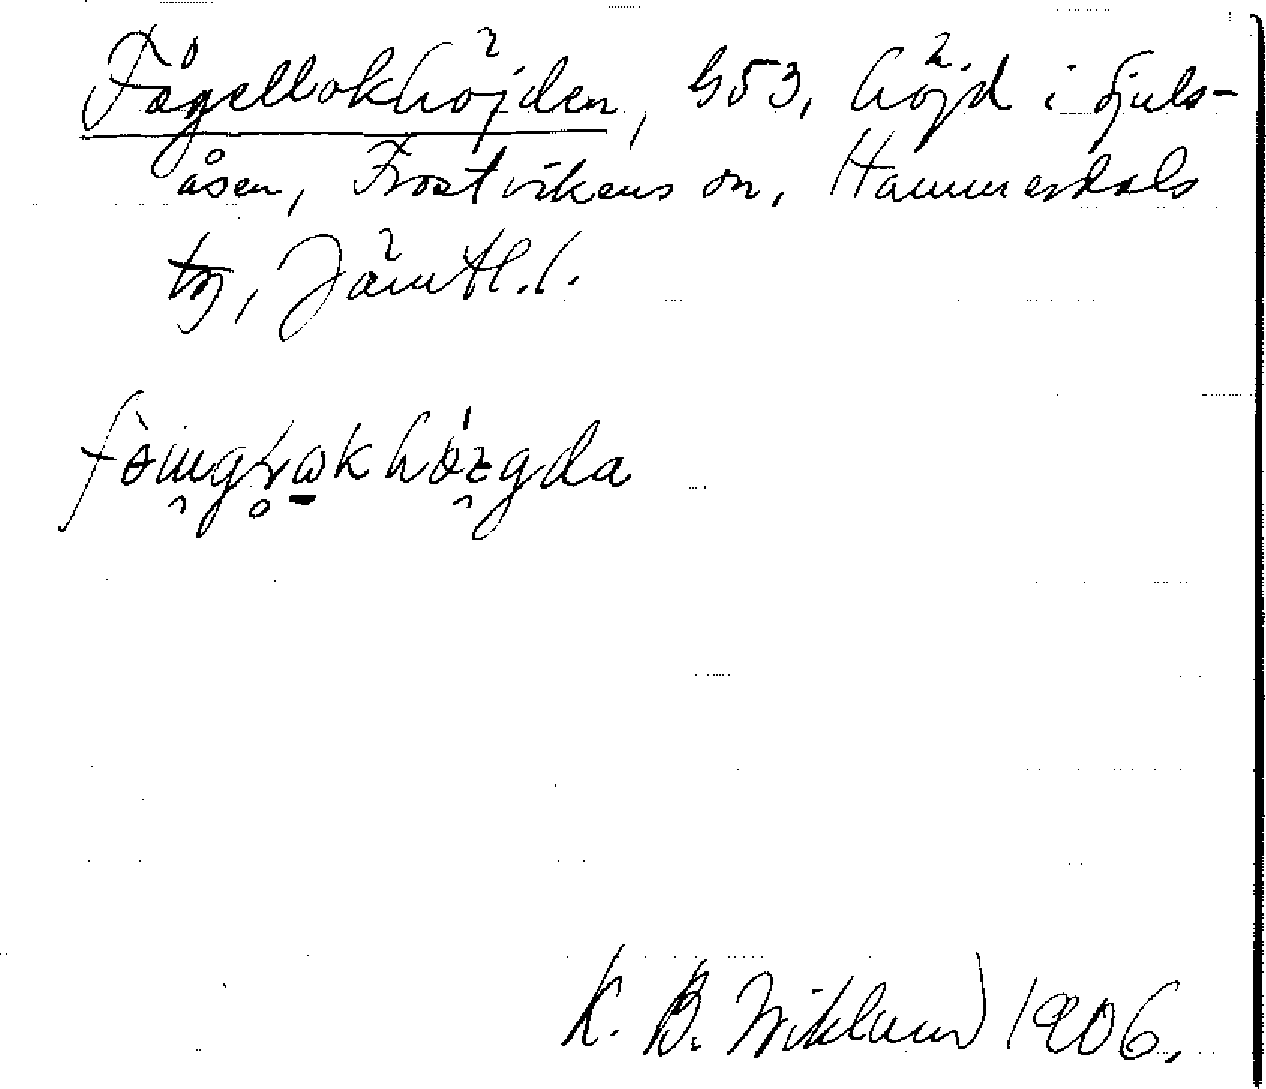 Fågelbokhöjden, 653, höjd i Sjuls-
åsen, Frostvikens sn, Hammerdals
tg, Jämtl. l.
K. B. Wiklund 1906.